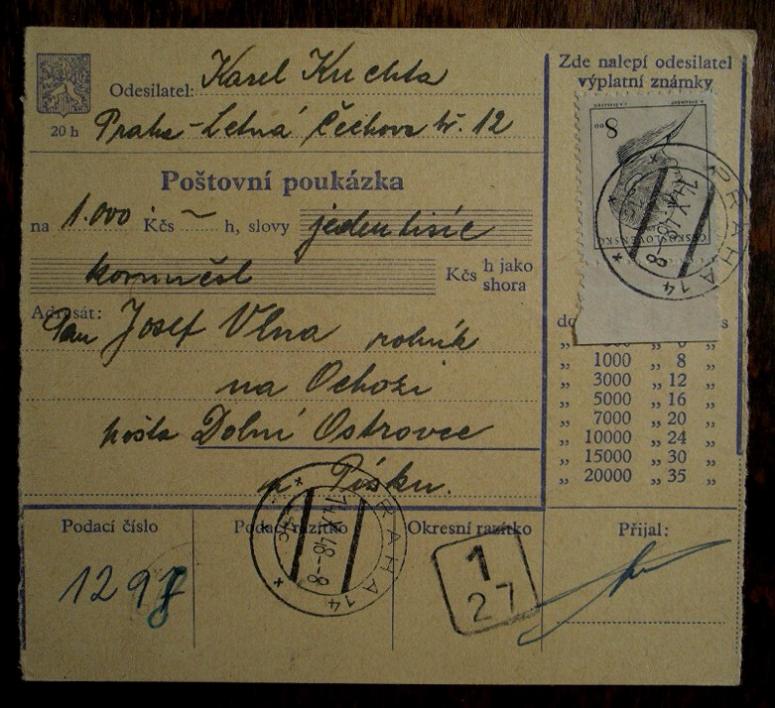 Zde nalepí odesilatel
výplatní známky
Odesilatel: Karel Kuchta
20 h
Praha-Letná Čechova tř. 12
8
ČESKOSLOVENSKO
PRAHA 14
14.X.48-8
Poštovní poukázka
na 1.000 Kčs ~ h, slovy jeden tisíc
korun čsl Kčs h jako
shora
Adresát:
Pan Josef Vlna rolník
na Ochozi
pošta Dolní Ostrovec
u Písku.
do
„ 1000 „ 8 „
„ 3000 „ 12 „
„ 5000 „ 16 „
„ 7000 „ 20 „
„ 10000 „ 24 „
„ 15000 „ 30 „
„ 20000 „ 35 „
Podací číslo Podací razítko Okresní razítko Přijal:
1298
PRAHA 14
14.X.48-8
1
27